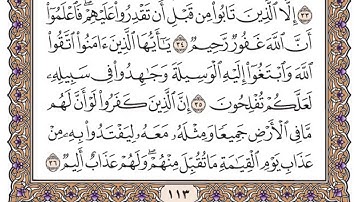 ٣٣ إِلَّا ٱلَّذِينَ تَابُوا۟ مِن قَبْلِ أَن تَقْدِرُوا۟ عَلَيْهِمْ ۖ فَٱعْلَمُوٓا۟
أَنَّ ٱللَّهَ غَفُورٌ رَّحِيمٌ ٣٤ يَـٰٓأَيُّهَا ٱلَّذِينَ ءَامَنُوا۟ ٱتَّقُوا۟
ٱللَّهَ وَٱبْتَغُوٓا۟ إِلَيْهِ ٱلْوَسِيلَةَ وَجَـٰهِدُوا۟ فِى سَبِيلِهِۦ
لَعَلَّكُمْ تُفْلِحُونَ ٣٥ إِنَّ ٱلَّذِينَ كَفَرُوا۟ لَوْ أَنَّ لَهُم
مَّا فِى ٱلْأَرْضِ جَمِيعًا وَمِثْلَهُۥ مَعَهُۥ لِيَفْتَدُوا۟ بِهِۦ مِنْ
عَذَابِ يَوْمِ ٱلْقِيَـٰمَةِ مَا تُقُبِّلَ مِنْهُمْ ۖ وَلَهُمْ عَذَابٌ أَلِيمٌ ٣٦
١١٣